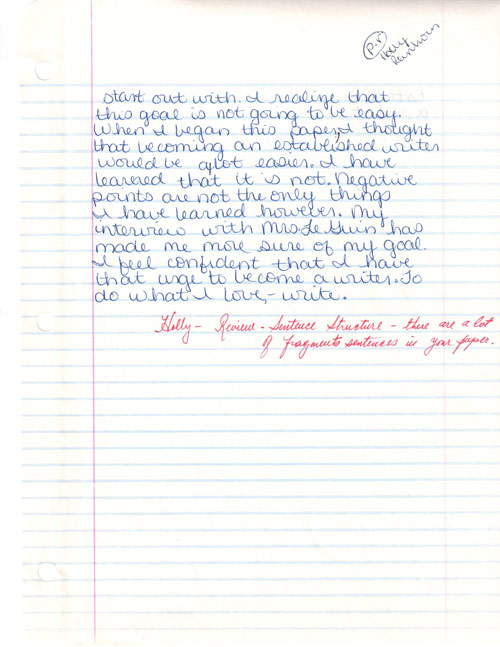 P.5
Holly
start out with. I realize that
this goal is not going to be easy.
When I began this paper, I thought
that becoming an established writer
would be alot easier. I have
learered that it is not. Negative
points are not the only things
I have learned however. My
interview with Mrs. Le Guin has
made me more sure of my goal.
I feel confident that I have
that urge to become a writer. To
do what I love, - write.
Holly - Review - Sentence Structure - there are a lot
of fragments sentences in your paper.